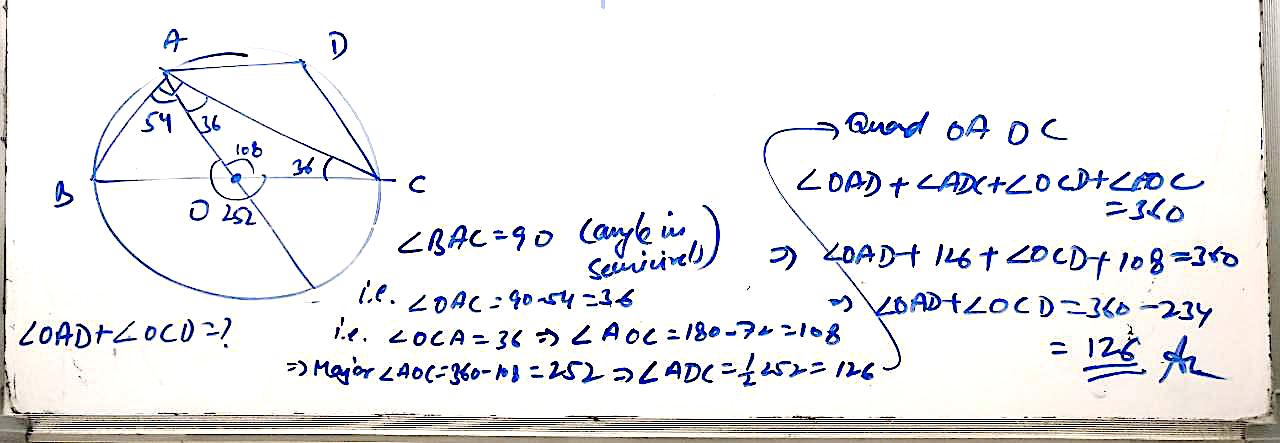 A
D
54
36
108
36
B
C
O 252
∠BAC = 90 (angle in
semicircle)
i.e. ∠OAC = 90-54 = 36
∠OAD+∠OCD = ?
i.e. ∠OCA = 36 ⇒ ∠AOC = 180-72 = 108
⇒ Major ∠AOC = 360-108 = 252 ⇒ ∠ADC = 1/2 252 = 126
→ Quad OA DC
∠OAD + ∠ADC + ∠OCD + ∠AOC
= 360
⇒ ∠OAD + 126 + ∠OCD + 108 = 360
⇒ ∠OAD + ∠OCD = 360 - 234
= 126 Ar